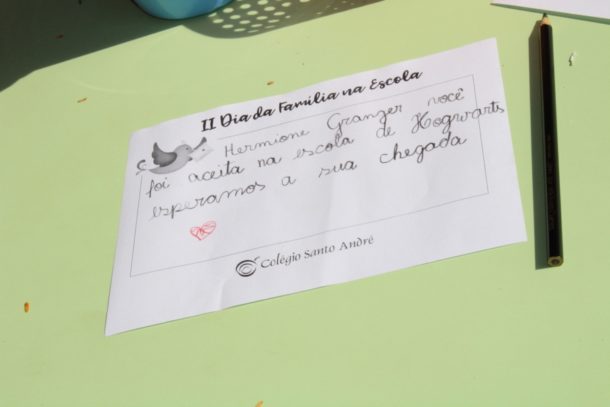 II Dia da Família na Escola
Hermione Granger você
foi aceita na escola de Hogwarts
esperamos a sua chegada
Colégio Santo André